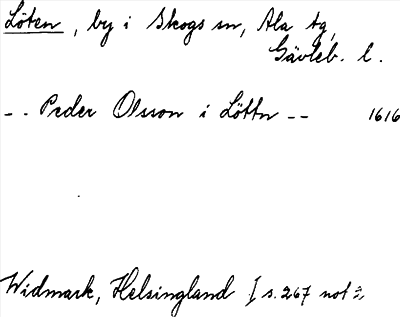 Löten, by i Skogs sn, Ala tg,
Gävleb. l.
-- Peder Olsson i Löttn -- 1616
Widmark, Helsingland I s. 267 not 2,